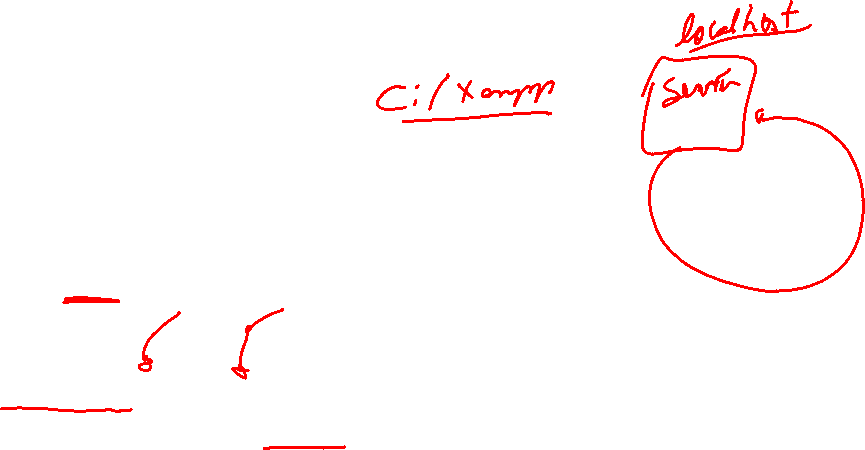 localhost
C:/Xampp
Server